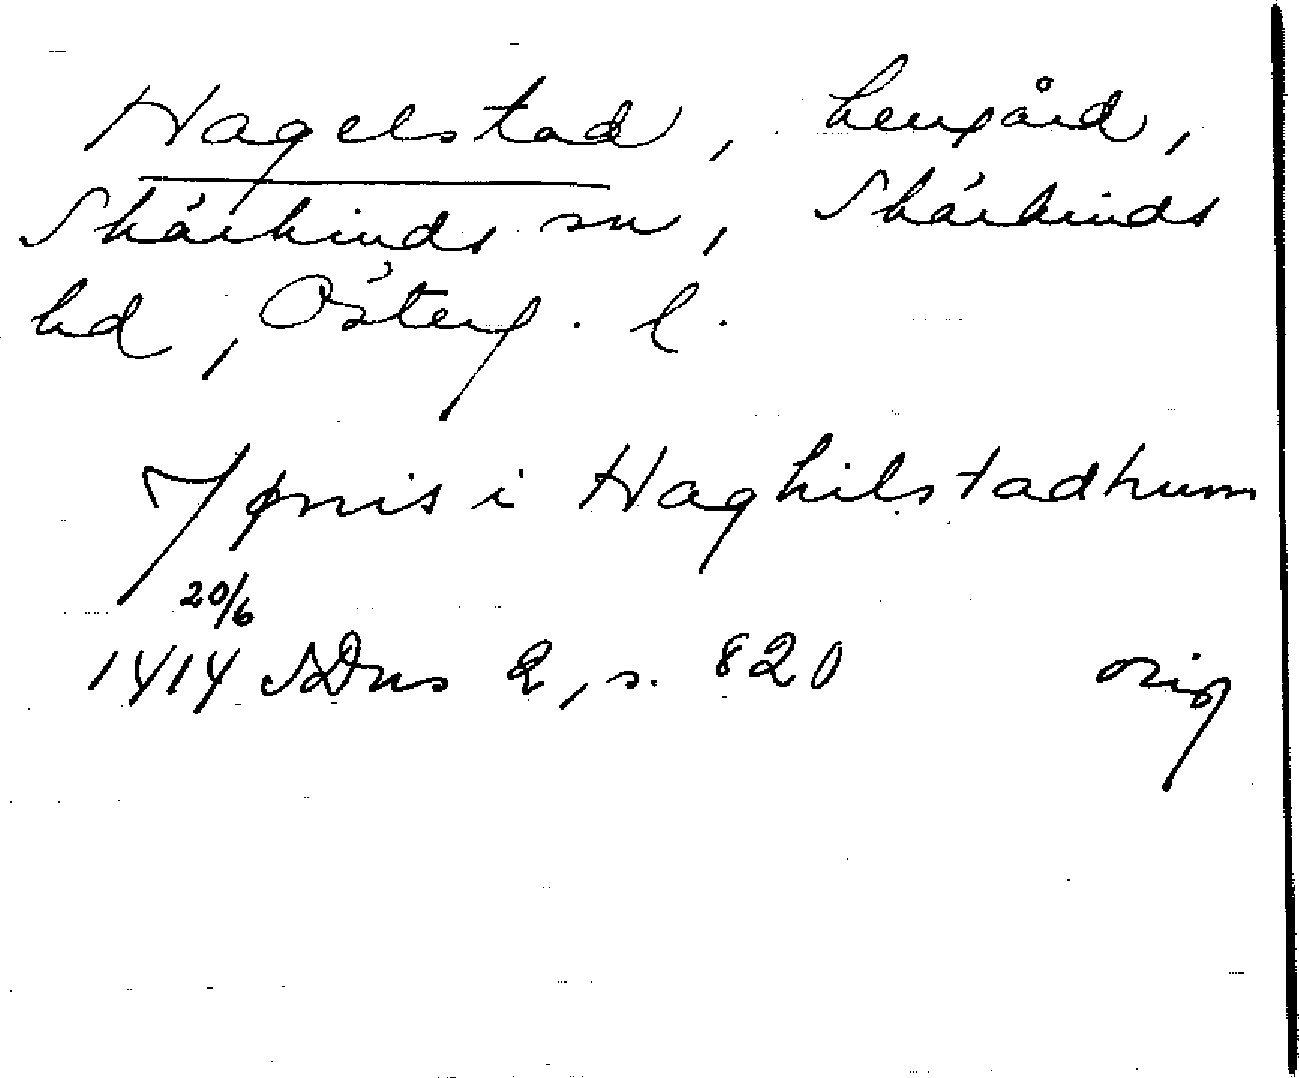 Hagelstad, herrgård,
Skärkinds sn, Skärkinds
hd, Österg. l.
i Haghilstadhum
20/6
1414 SDns 2, s. 820 orig